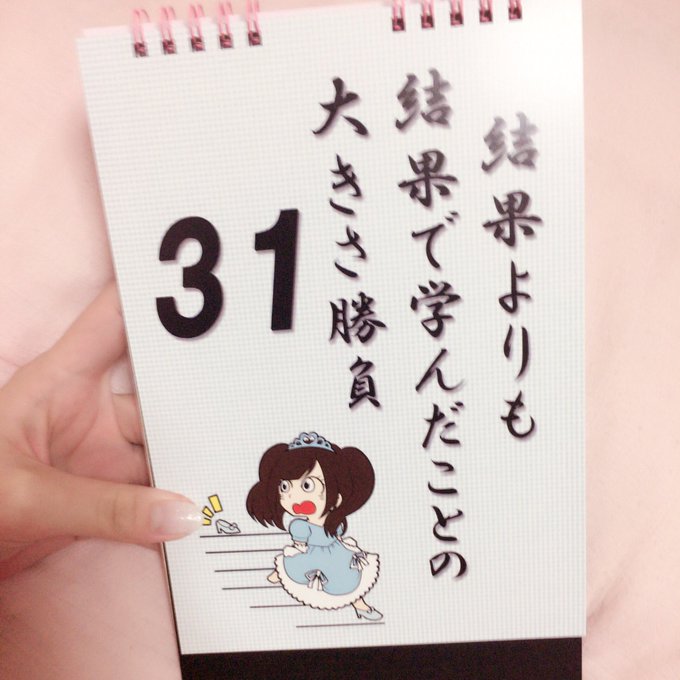 結果よりも
結果で学んだことの
大きさ勝負
31